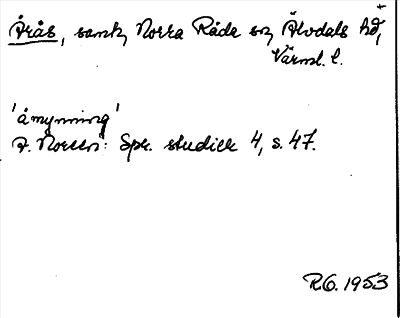 Årås, samt, Norra Råda sn, Älvdals hd,
Värml. l.
'åmynning'
A. Noreen: Spr. studier 4, s. 47.
R.G. 1953